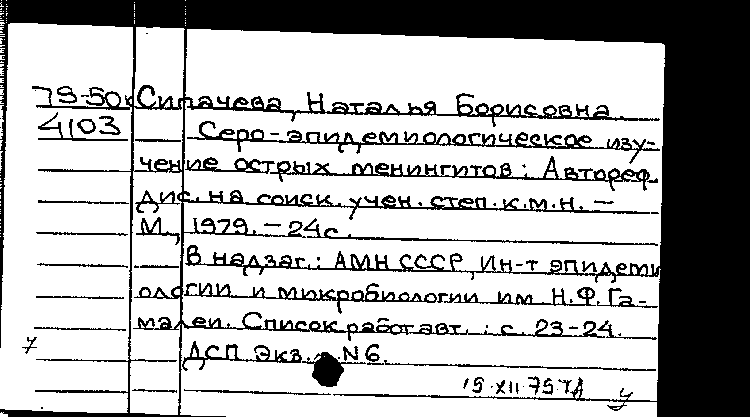 79-50к Сипачева, Наталья Борисовна.
4103 Серо-эпидемиологическое изу-
чение острых менингитов: Автореф.
дис. на соиск. учен. степ. к.м.н. —
М., 1979. — 24с.
В надзаг.: АМН СССР, Ин-т эпидеми
ологии и микробиологии им Н.Ф. Га-
малеи. Список работ авт.: с. 23-24.
ДСП Экз. N6.